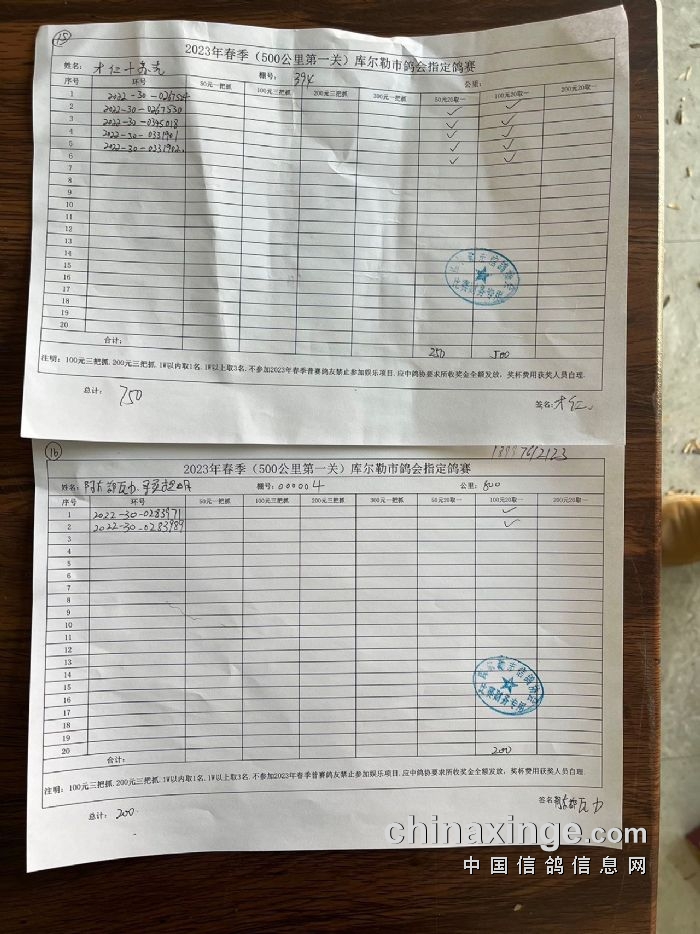 15
2023年春季（500公里第一关）库尔勒市鸽会指定鸽赛
姓名： 才仁 棚号： 394 公里：
序号 环号 50元一把抓 100元三把抓 200元三把抓 300元一把抓 50元20取一 100元20取一 200元20取一
1 2022-30-0267524 ✓
2 2022-30-0267530 ✓ ✓
3 2022-30-0345018 ✓ ✓
4 2022-30-0331901 ✓ ✓
5 2022-30-0331902 ✓ ✓
6 ✓ ✓
7
8
9
10
11
12
13
14
15
16
17
18
19
20
合计： 250 500
注明：100元三把抓.200元三把抓.1W以内取1名.1W以上取3名.不参加2023年春季普赛鸽友禁止参加娱乐项目.应中鸽协要求所收奖金全额发放，奖杯费用获奖人员自理.
总计： 750 签名：才仁
16
18997612123
2023年春季（500公里第一关）库尔勒市鸽会指定鸽赛
姓名： 棚号：000004 公里：500
序号 环号 50元一把抓 100元三把抓 200元三把抓 300元一把抓 50元20取一 100元20取一 200元20取一
1 2022-30-0283971 ✓
2 2022-30-0283989 ✓
3
4
5
6
7
8
9
10
11
12
13
14
15
16
17
18
19
20 200
合计：
注明：100元三把抓.200元三把抓.1W以内取1名.1W以上取3名.不参加2023年春季普赛鸽友禁止参加娱乐项目.应中鸽协要求所收奖金全额发放，奖杯费用获奖人员自理.
总计： 200 签名
chinaxinge.com
中国信鸽信息网